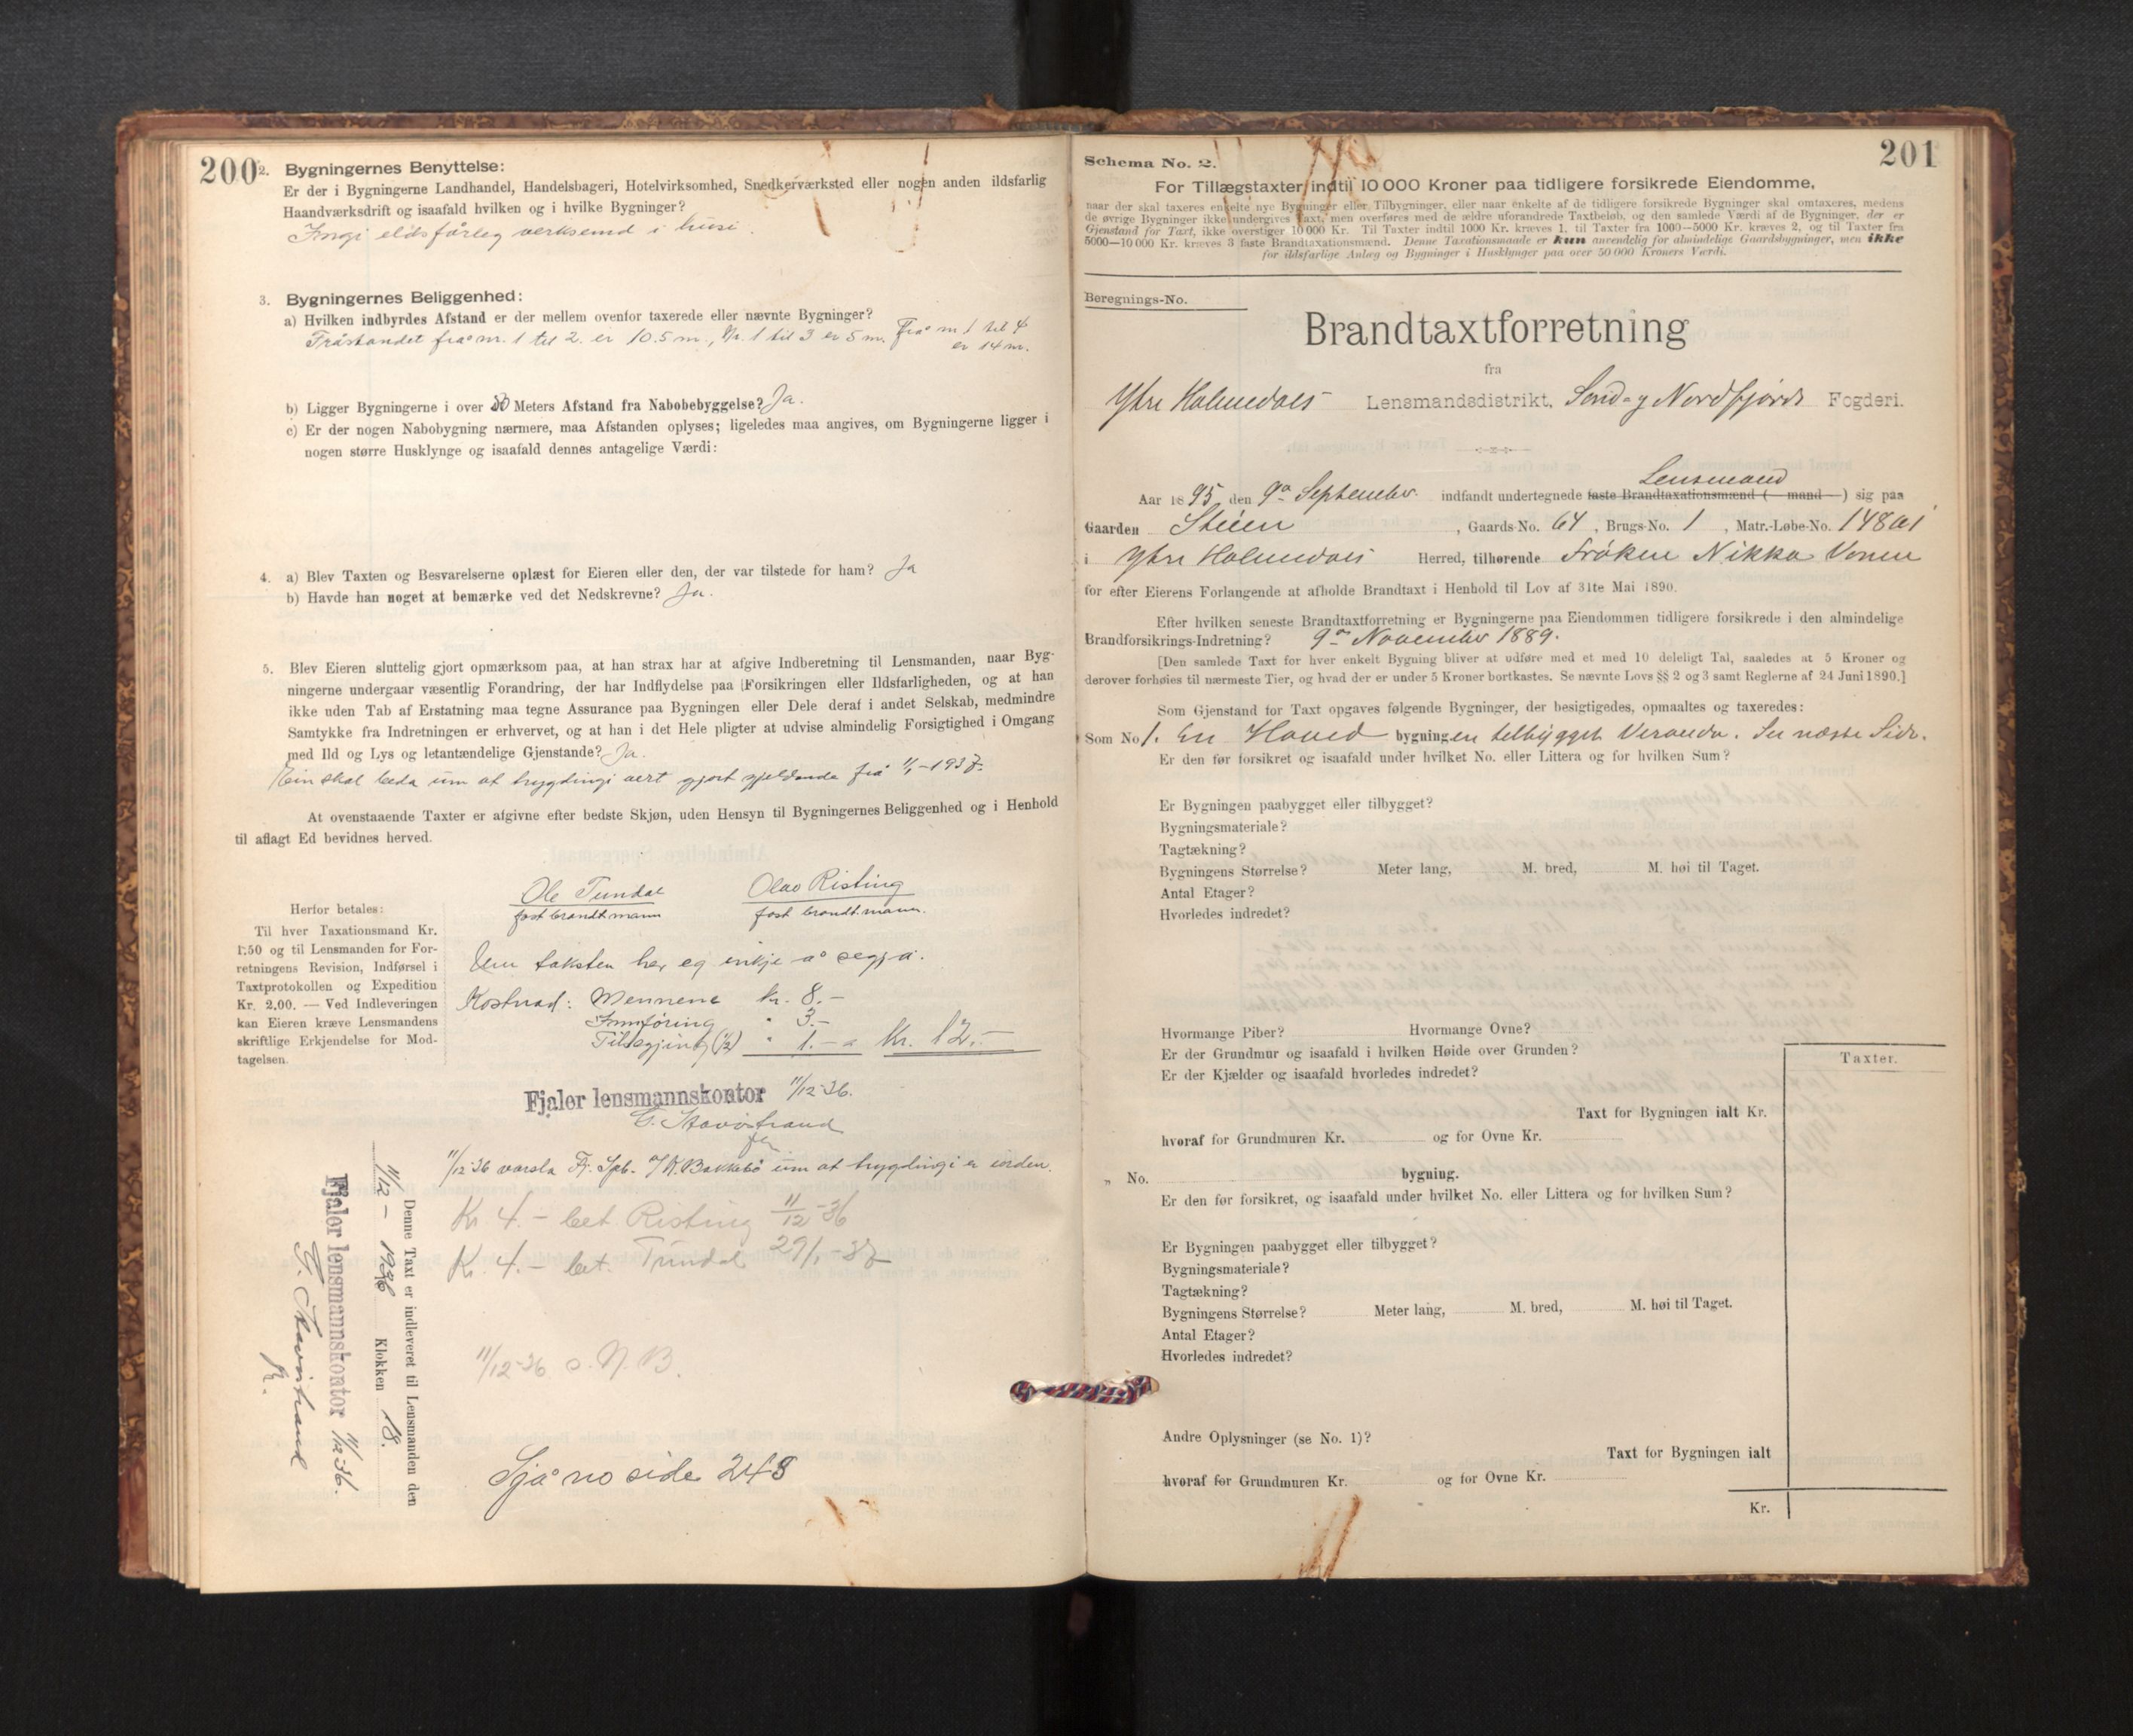 200
2. Bygningernes Benyttelse:
Er der i Bygningerne Landhandel, Handelsbageri, Hotelvirksomhed, Snedkerværksted eller nogen anden ildsfarlig
Haandværksdrift og isaafald hvilken og i hvilke Bygninger?
Ingi eldsfårleg verksemd i husi.
3. Bygningernes Beliggenhed:
a) Hvilken indbyrdes Afstand er der mellem ovenfor taxerede eller nævnte Bygninger?
Fråstandet frå nr. 1 til 2. er 10.5 m., Nr. 1 til 3 er 5 m. Frå nr 1 til 4
er 14 m.
b) Ligger Bygningerne i over 30 Meters Afstand fra Nabobebyggelse? Ja.
c) Er der nogen Nabobygning nærmere, maa Afstanden oplyses; ligeledes maa angives, om Bygningerne ligger i
nogen større Husklynge og isaafald dennes antagelige Værdi:
4. a) Blev Taxten og Besvarelserne oplæst for Eieren eller den, der var tilstede for ham? Ja
b) Havde han noget at bemærke ved det Nedskrevne? Ja.
5. Blev Eieren sluttelig gjort opmærksom paa, at han strax har at afgive Indberetning til Lensmanden, naar Byg-
ningerne undergaar væsentlig Forandring, der har Indflydelse paa Forsikringen eller Ildsfarligheden, og at han
ikke uden Tab af Erstatning maa tegne Assurance paa Bygningen eller Dele deraf i andet Selskab, medmindre
Samtykke fra Indretningen er erhvervet, og at han i det Hele pligter at udvise almindelig Forsigtighed i Omgang
med Ild og Lys og letantændelige Gjenstande? Ja.
Ein skal beda um at trygdingi vert gjort gjeldande frå 1/1-1937.
At ovenstaaende Taxter er afgivne efter bedste Skjøn, uden Hensyn til Bygningernes Beliggenhed og i Henhold
til aflagt Ed bevidnes herved.
Ole Tundal Olav Risting
fast brandtmann fast brandt.mann.
Herfor betales:
Til hver Taxationsmand Kr.
1.50 og til Lensmanden for For-
retningens Revision, Indførsel i
Taxtprotokollen og Expedition
Kr. 2,00. — Ved Indleveringen
kan Eieren kræve Lensmandens
skriftlige Erkjendelse for Mod-
tagelsen.
Um taksten har eg inkje å segja.
Kostnad: Mennene kr. 8.-
Innføring " 3.-
Tilsegjing (1/2) " 1.- = Kr. 12.-
Fjaler lensmannskontor 11/12-36.
G. Stavøstrand
fm
11/12-36 varsla Fj. Spb. v/K. Bakkebø um at trygdingi er iorden.
Kr 4.- bet Risting 11/12-36
Kr. 4.- bet. Tundal 29/1-37
11/12-36 s. N. B.
Sjå no side 248
Denne Taxt er indleveret til Lensmanden den
11/12 - 1936 Klokken 18.
Fjaler lensmannskontor 11/12-36.
G. Stavøstrand
fm.
201
Schema No. 2.
For Tillægstaxter indtil 10 000 Kroner paa tidligere forsikrede Eiendomme,
naar der skal taxeres enkelte nye Bygninger eller Tilbygninger, eller naar enkelte af de tidligere forsikrede Bygninger skal omtaxeres, medens
de øvrige Bygninger ikke undergives Taxt, men overføres med de ældre uforandrede Taxtbeløb, og den samlede Værdi af de Bygninger, der er
Gjenstand for Taxt, ikke overstiger 10 000 Kr. Til Taxter indtil 1000 Kr. kræves 1, til Taxter fra 1000—5000 Kr. kræves 2, og til Taxter fra
5000—10 000 Kr. kræves 3 faste Brandtaxationsmænd. Denne Taxationsmaade er kun anvendelig for almindelige Gaardsbygninger, men ikke
for ildsfarlige Anlæg og Bygninger i Husklynger paa over 50 000 Kroners Værdi.
Beregnings-No.
Brandtaxtforretning
fra
Ytre Holmedals Lensmandsdistrikt, Sønd- og Nordfjords Fogderi.
Lensmand
Aar 1895, den 9de September indfandt undertegnede faste Brandtaxationsmænd (— mand —) sig paa
Gaarden Steien, Gaards-No. 64, Brugs-No. 1, Matr.-Løbe-No. 148a1
i Ytre Holmedals Herred, tilhørende Frøken Nikka Vonen
for efter Eierens Forlangende at afholde Brandtaxt i Henhold til Lov af 31te Mai 1890.
Efter hvilken seneste Brandtaxtforretning er Bygningerne paa Eiendommen tidligere forsikrede i den almindelige
Brandforsikrings-Indretning? 9de November 1889.
[Den samlede Taxt for hver enkelt Bygning bliver at udføre med et med 10 deleligt Tal, saaledes at 5 Kroner og
derover forhøies til nærmeste Tier, og hvad der er under 5 Kroner bortkastes. Se nævnte Lovs §§ 2 og 3 samt Reglerne af 24 Juni 1890.]
Som Gjenstand for Taxt opgaves følgende Bygninger, der besigtigedes, opmaaltes og taxeredes:
Som No 1. En Hovedbygning en tilbygget Veranda. Se næste Side.
Er den før forsikret og isaafald under hvilket No. eller Littera og for hvilken Sum?
Er Bygningen paabygget eller tilbygget?
Bygningsmateriale?
Tagtækning?
Bygningens Størrelse? Meter lang, M. bred, M. høi til Taget.
Antal Etager?
Hvorledes indredet?
Hvormange Piber? Hvormange Ovne?
Er der Grundmur og isaafald i hvilken Høide over Grunden?
Er der Kjælder og isaafald hvorledes indredet?
Taxter.
Taxt for Bygningen ialt Kr.
hvoraf for Grundmuren Kr. og for Ovne Kr.
„ No. bygning.
Er den før forsikret, og isaafald under hvilket No. eller Littera og for hvilken Sum?
Er Bygningen paabygget eller tilbygget?
Bygningsmateriale?
Tagtækning?
Bygningens Størrelse? Meter lang, M. bred, M. høi til Taget.
Antal Etager?
Hvorledes indredet?
Andre Oplysninger (se No. 1)?
Taxt for Bygningen ialt
hvoraf for Grundmuren Kr. og for Ovne Kr.
Kr.